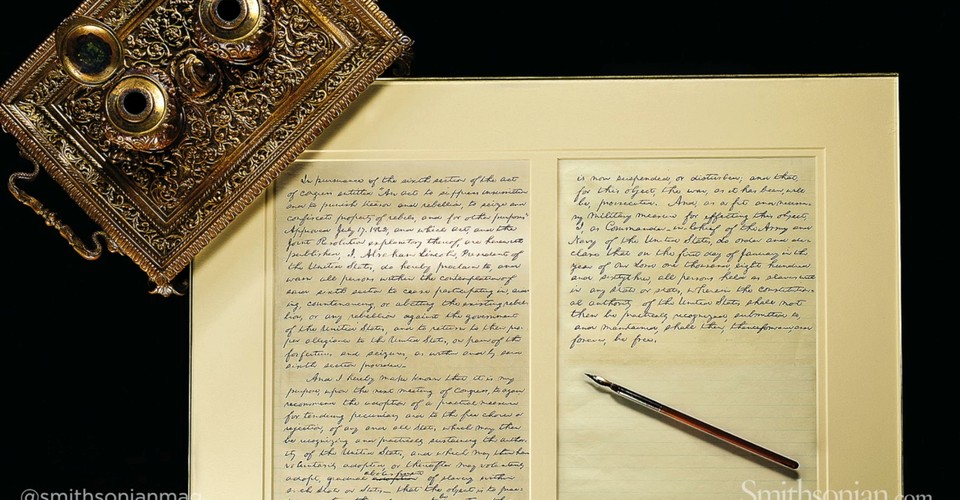 In pursuance of the sixth section of the act
of congress entitled "An act to suppress insurrection
and to punish treason and rebellion, to seize and
confiscate property of rebels, and for other purposes"
Approved July 17, 1862, and which act, and the
Joint Resolution explanatory thereof, are herewith
published, I, Abraham Lincoln, President of
the United States, do hereby proclaim to, and
warn all persons within the contemplation of
said sixth section to cease participating in, aid-
ing, countenancing, or abetting the existing rebel-
lion, or any rebellion against the government
of the United States, and to return to their pro-
per allegiance to the United States, on pain of the
forfeitures and seizures, as within and by said
sixth section provided.
And I hereby make known that it is my
purpose, upon the next meeting of Congress, to again
recommend the adoption of a practical measure
for tendering pecuniary aid to the free choice or
rejection, of any and all States, which may then
be recognizing and practically sustaining the author-
ity of the United States, and which may then have
voluntarily adopted, or thereafter may voluntarily
adopt, gradual adoption abolishment of slavery within
such State or States— that the object is to prac-
is now suspended, or disturbed; and that
for this object, the war, as it has been, will
be, prosecuted. And, as a fit and necessa-
ry military measure for effecting this object,
I, as Commander-in-Chief of the Army and
Navy of the United States, do order and de-
clare that on the first day of January in the
year of our Lord one thousand, eight hundred
and sixtythree, all persons held as slaves within
in any state or states, wherein the constitution-
al authority of the United States shall not
then be practically recognized, submitted to,
and maintained, shall then, thenceforward, and
forever, be free.
@smithsonianmag
Smithsonian.com